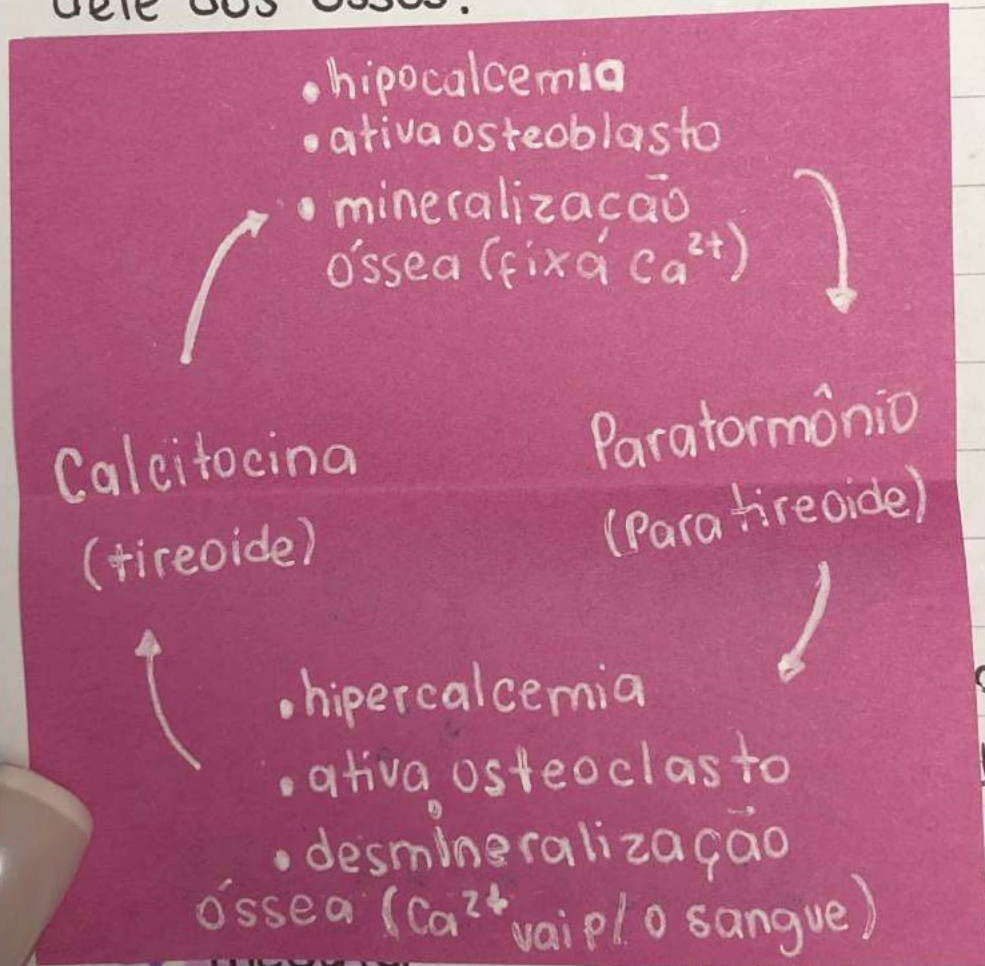 dele dos ossos.
• hipocalcemia
• ativa osteoblasto
• mineralização
óssea (fixá Ca²⁺)
Calcitocina
(tireoide)
Paratormônio
(Paratireoide)
• hipercalcemia
• ativa osteoclasto
• desmineralização
óssea (Ca²⁺ vai p/ o sangue)